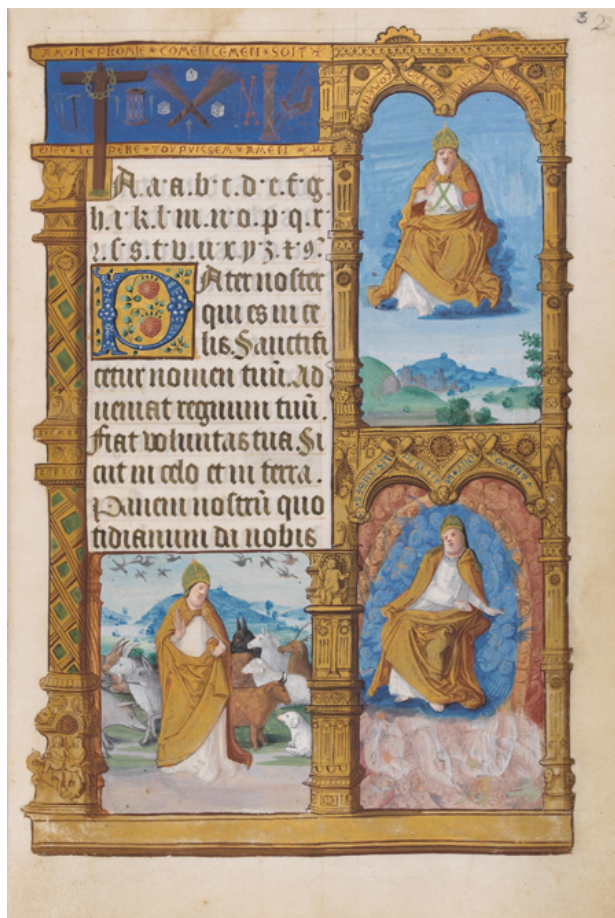 3 2
AMON * PROMIE * COMENCEMEN * SOIT
DIEV * LE * PERE * TOVPVISSEM * AMEN *
A.a.a.b.c.d.e.f.g.
h.i.k.l.m.n.o.p.q.r
r.s.s.t.v.u.x.y.z.⁊.9.
Pater noster
qui es in ce
lis. Sanctifi
cetur nomen tuū. Ad
ueniat regnum tuū.
Fiat voluntas tua. Si
cut in celo et in terra.
Panem nostrū quo
tidianum da nobis